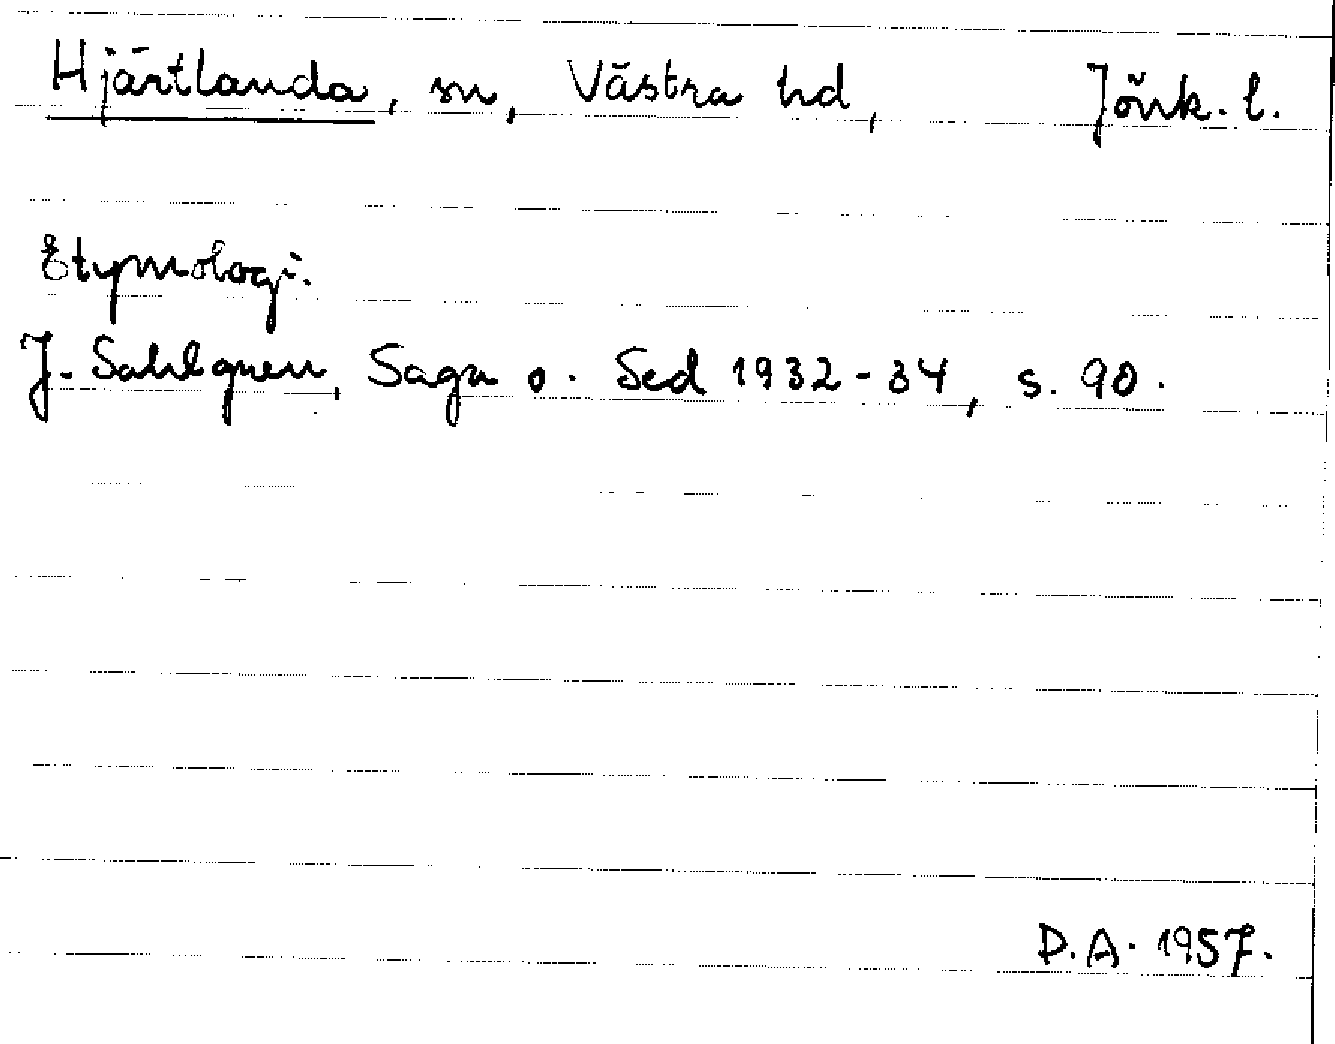 Hjärtlanda, sn, Västra hd, Jönk. l.
Etymologi.
J. Sahlgren, Saga o. Sed 1932-34, s. 90.
D.A. 1957.